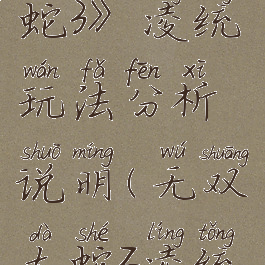 蛇3》 凌统
wán fǎ fēn xī
玩法分析
shuō míng wú shuāng
说明(无双
dà shé líng tǒng
大蛇z凌统